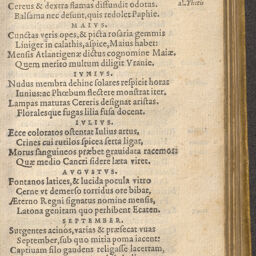 Cereus & dextra flamas diffundit odoras.
Balsama nec desunt, quis redolet Paphie.
al. Thuris
MAIVS.
Cunctas veris opes, & picta rosaria gemmis
Liniger in calathis, aspice, Maius habet:
Mensis Atlantigenæ dictus cognomine Maiæ,
Quem merito multum diligit Vranie.
IVNIVS.
Nudus membra dehinc solares respicit horas
Iunius: ac Phœbum flectere monstrat iter.
Lampas maturas Cereris designat aristas.
Floralesque fugas lilia fusa docent.
IVLIVS.
Ecce coloratos ostentat Iulius artus,
Crines cui rutilos spicea serta ligat,
Morus sanguineos præbet grauidata racemos:
Quæ medio Cancri sidere læta viret.
AVGVSTVS.
Fontanos latices, & lucida pocula vitro
Cerne vt demerso torridus ore bibat,
Æterno Regni signatus nomine mensis,
Latona genitam quo perhibent Ecaten.
SEPTEMBER.
Surgentes acinos, varias & præsecat vuas
September, sub quo mitia poma iacent:
Captiuam filo gaudens religasse lacertam,